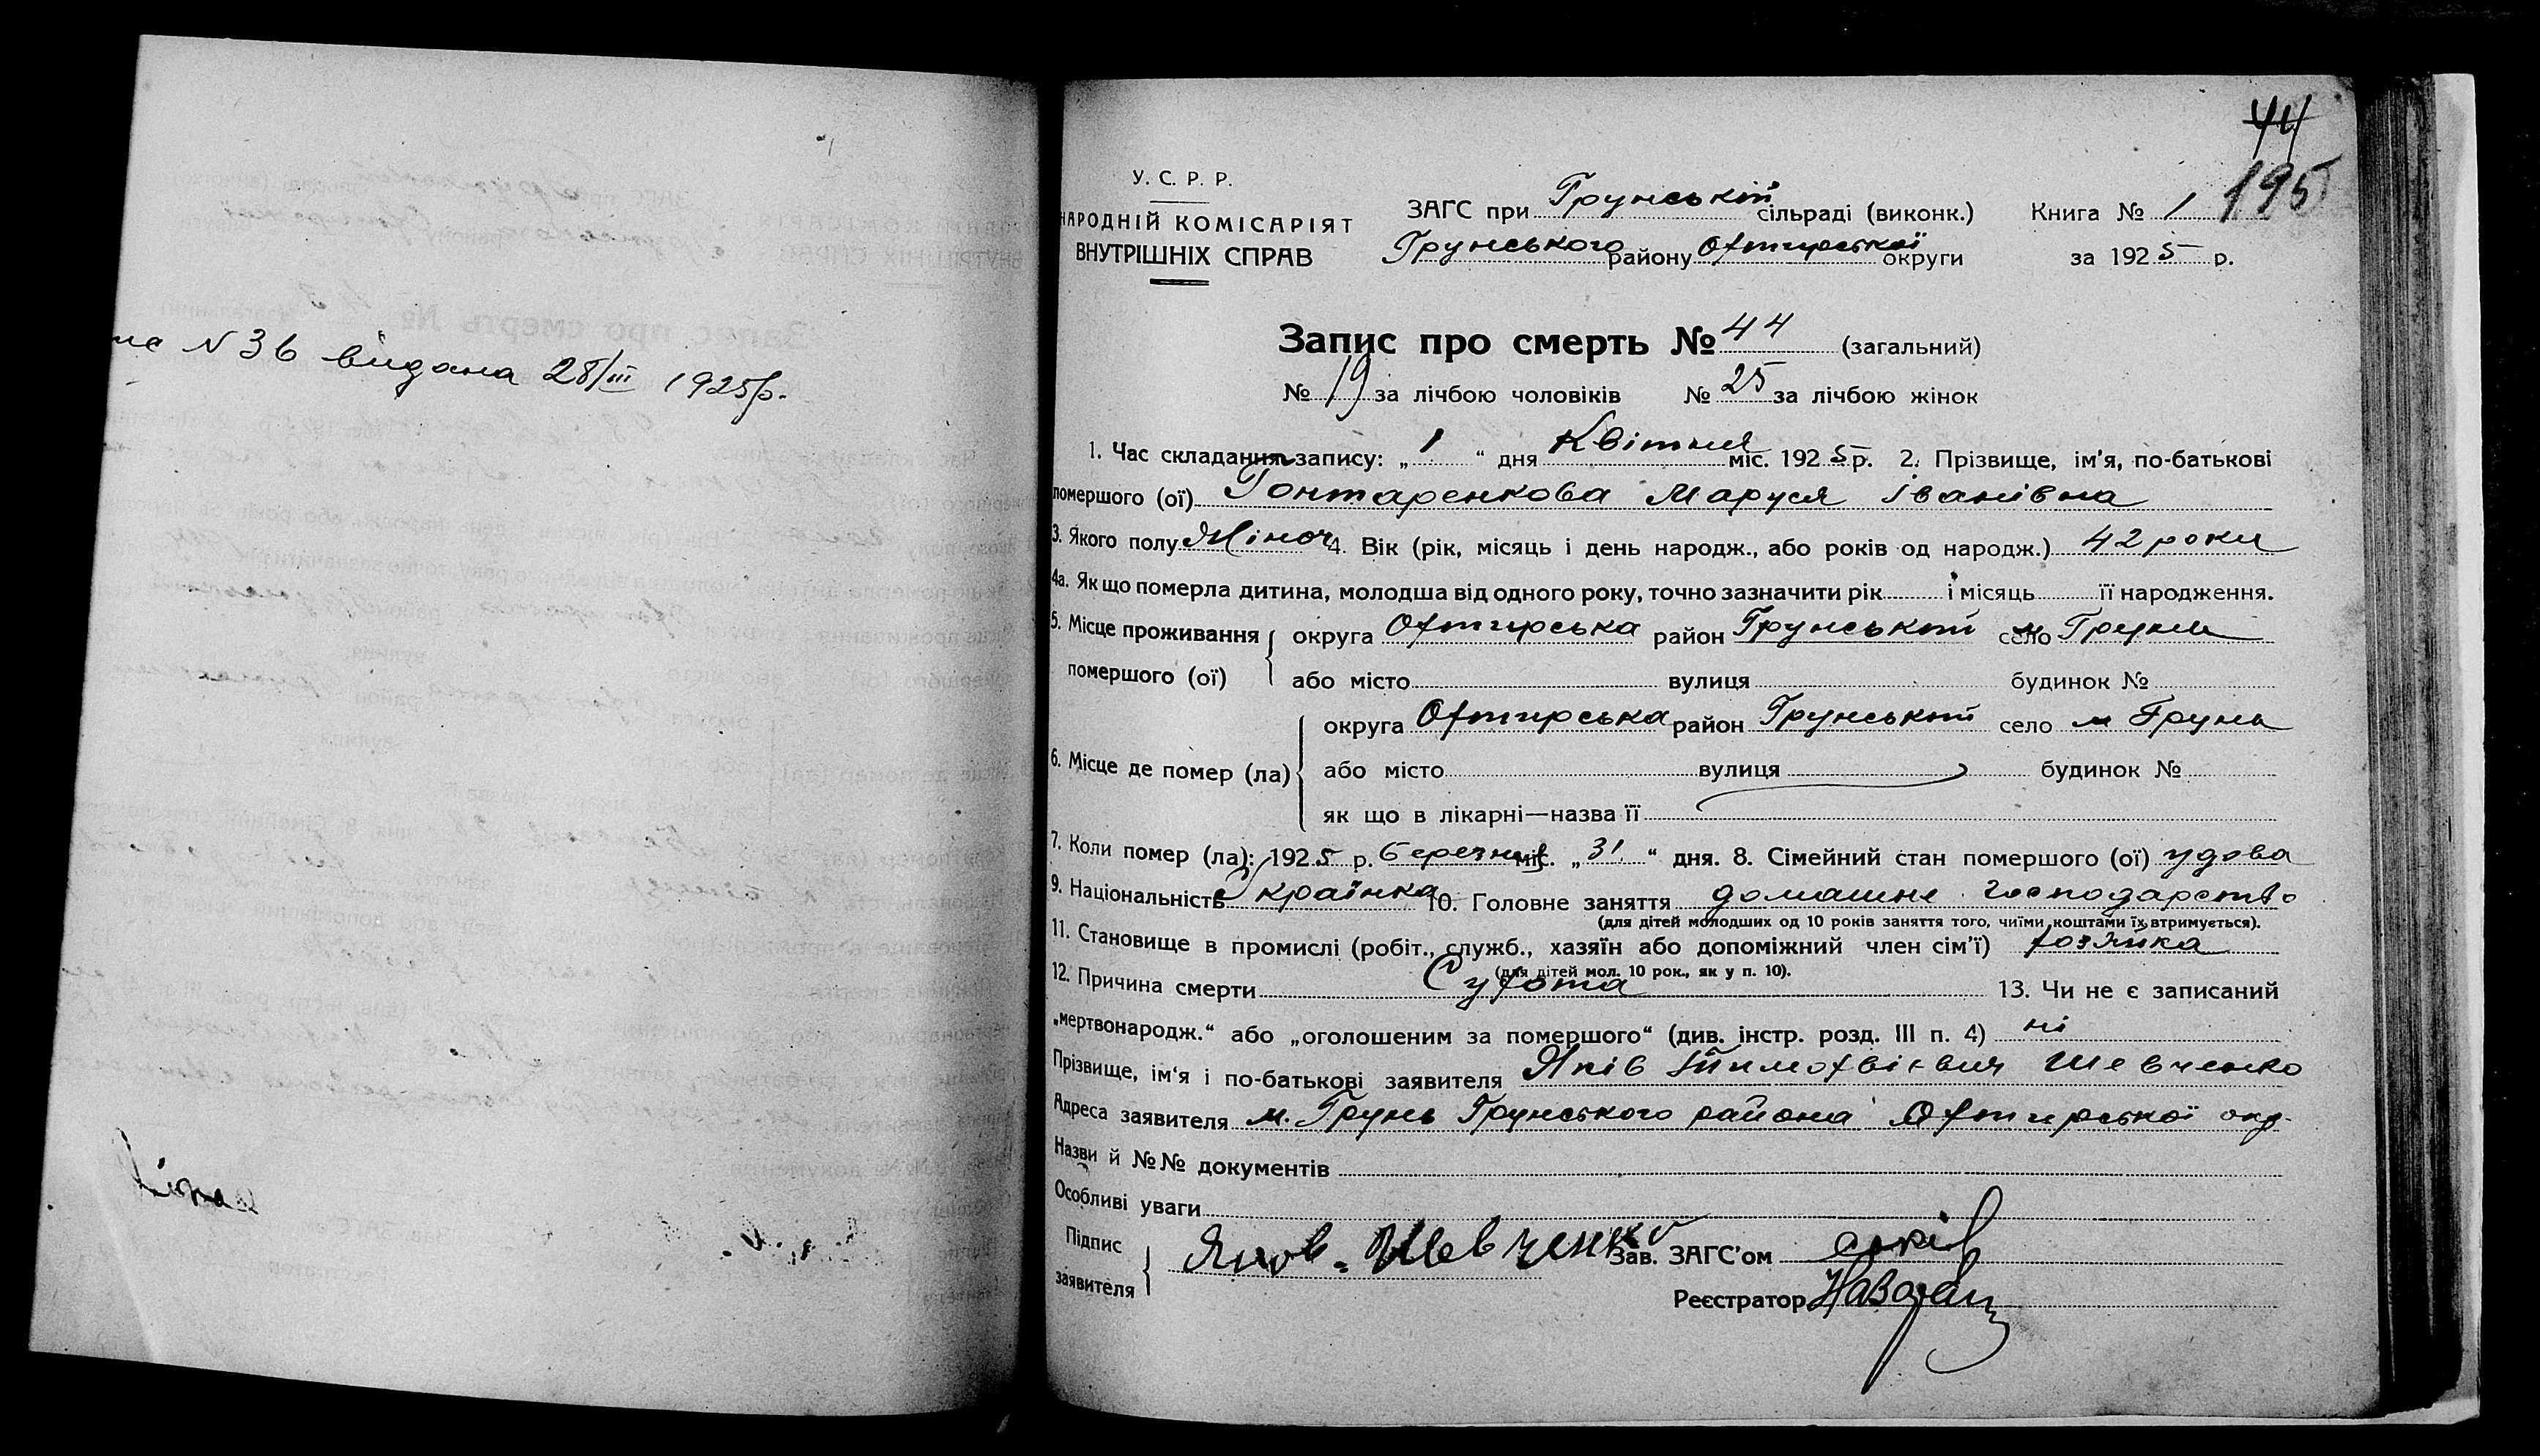 № 36 видана 28/III 1925р.
44
195
У. С. Р. Р.
НАРОДНІЙ КОМІСАРІЯТ
ВНУТРІШНІХ СПРАВ
ЗАГС при Грунській сільраді (виконк.) Книга № 1
Грунського району Охтирської округи за 1925 р.
Запис про смерть № 44 (загальний)
№ 19 за лічбою чоловіків № 25 за лічбою жінок
1. Час складання запису: „1“ дня Квітня міс. 1925 р. 2. Прізвище, ім’я, по-батькові
помершого (ої) Гонтаренкова Маруся Іванівна
3. Якого полу Жіноч 4. Вік (рік, місяць і день народж., або років од народж.) 42 роки
4а. Як що померла дитина, молодша від одного року, точно зазначити рік і місяць її народження.
5. Місце проживання округа Охтирська район Грунський село м Грунь
помершого (ої) або місто вулиця будинок №
округа Охтирська район Грунський село м Грунь
6. Місце де помер (ла) або місто вулиця будинок №
як що в лікарні—назва її
7. Коли помер (ла): 1925 р. березня міс. „31“ дня. 8. Сімейний стан помершого (ої) удова
9. Національність Українка 10. Головне заняття домашнє господарство
(для дітей молодших од 10 років заняття того, чиїми коштами їх втримується).
11. Становище в промислі (робіт., служб., хазяїн або допоміжний член сім’ї) хозяйка
(для дітей мол. 10 рок., як у п. 10).
12. Причина смерти Сухота 13. Чи не є записаний
„мертвонародж.“ або „оголошеним за помершого“ (див. інстр. розд. III п. 4) ні
Прізвище, ім‘я і по-батькові заявителя Яків Шевченко
Адреса заявителя м. Грунь Грунського района Охтирської окр.
Назви й №№ документів
Особливі уваги
Підпис
заявителя Яков. Шевченко Зав. ЗАГС’ом
Реєстратор